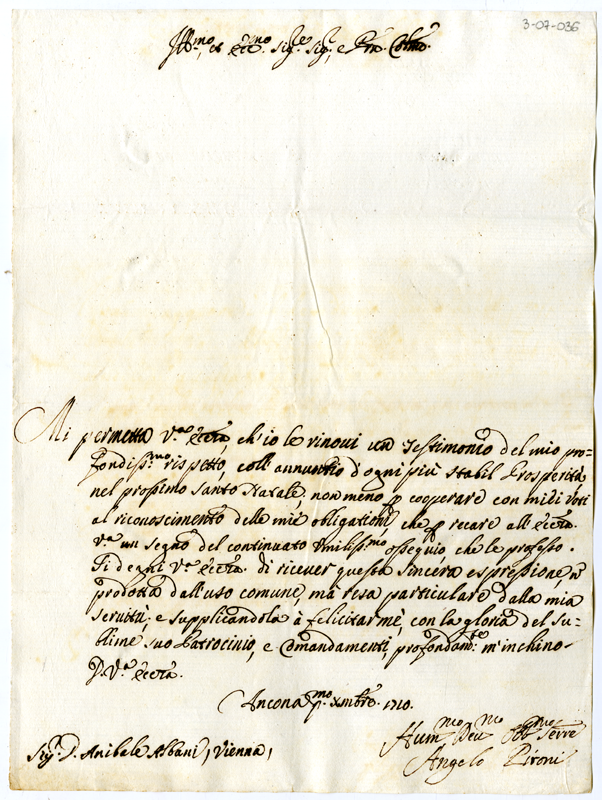 3-07-036
Ill.mo, et Ecc.mo Sig.re Sig.re, e Pron. Colmo.
Mi permetta V.a Eccza, ch'io le rinoui un Testimonio del mio pro-
fondiss.mo rispetto, coll'annuntio d'ogni più stabil Prosperità
nel prossimo Santo Natale, non meno p cooperare con mili voti
al riconoscimento delle mie obligationi, che p recare all'Eccza.
V.a un segno del continuato Vmiliss.mo ossequio che le professo.
Si degni V.a Eccza. di riceuer questa sincera espressione nõ
prodotta dall'uso comune, mà resa particulare dalla mia
seruitù; e supplicandola à felicitarmè, con la gloria del su-
blime suo Patrocinio, e Comandamenti, profondam.te m'inchino
D. V.a Eccza.
Ancona p.mo Xmbre. 1710.
Hum.mo Deu.mo Obb.mo Serre
Sig.r D. Anibale Albani, Vienna,
Angelo Pironi